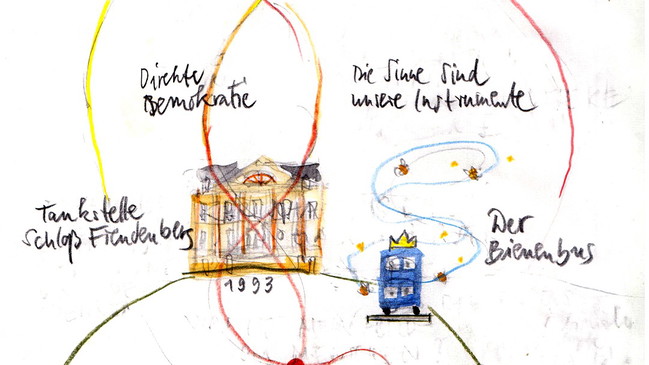 Direkte
Demokratie
Die Sinne sind
unsere Instrumente
Tankstelle
Schloß Freudenberg
Der
Bienenbus
1993